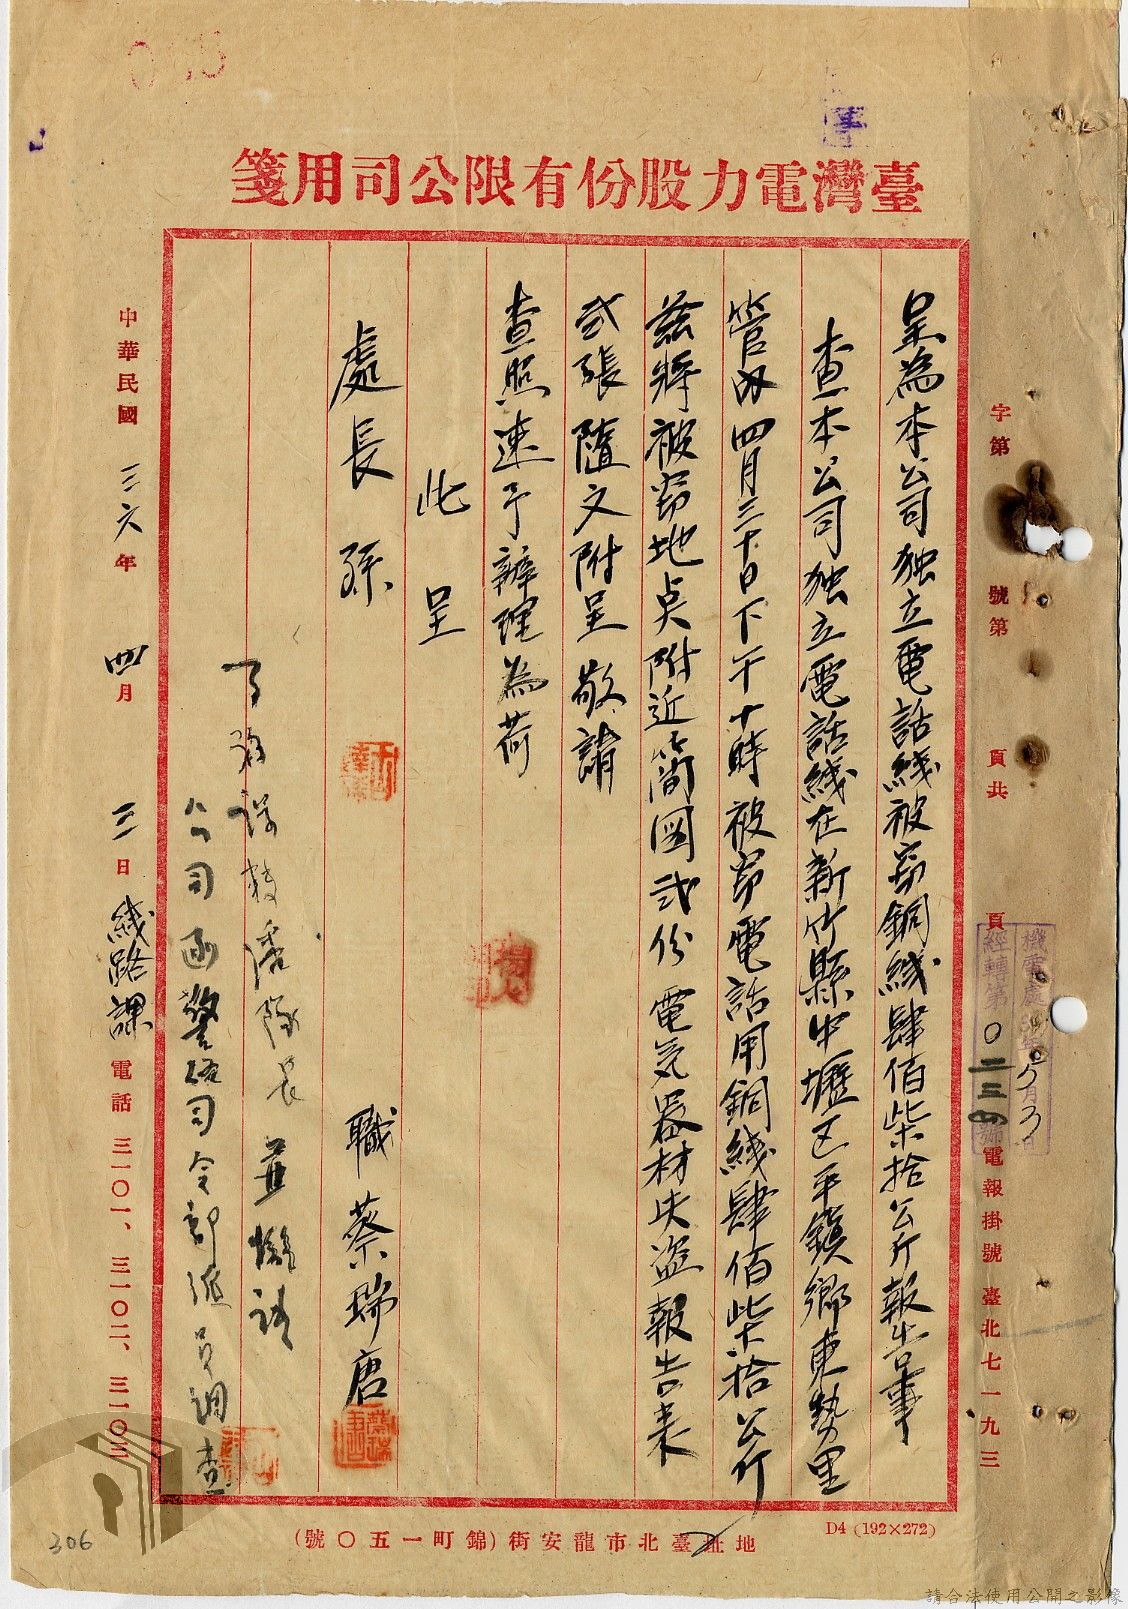 臺灣電力股份有限公司用箋
字第　號第　頁共　頁
電報掛號臺北七一九三
機電處
經轉第〇二三四號
5月3日
呈為本公司独立電話綫被窃銅綫肆佰柴拾公斤報告事
查本公司独立電話綫在新竹縣中壢区平鎮鄉東勢里
管內四月三十日下午十時被窃電話用銅綫肆佰柴拾公斤
茲將被窃地点附近簡図弍份電気器材失盜報告表
弍張隨文附呈敬請
查照速予辦理為荷
此呈
處長孫
職蔡瑞唐
公司函警備司令部派員調查
中華民國三六年四月三日綫路課電話三一〇一、三一〇二、三一〇三
地址臺北市龍安街(錦町一五〇號)
D4 (192×272)
306
請合法使用公開之影像